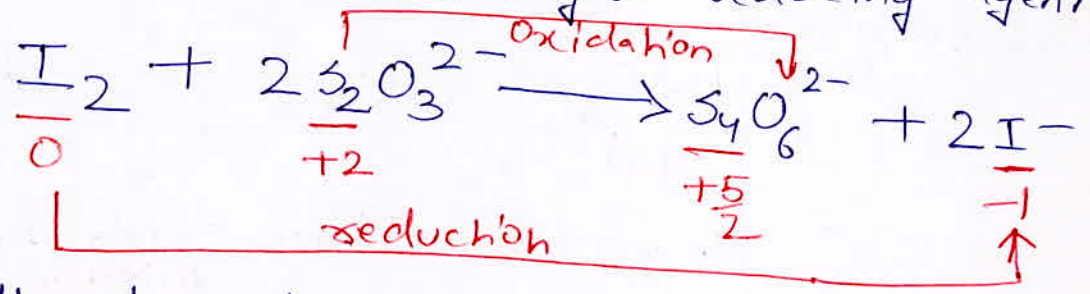 agent
Oxidation
I₂ + 2S₂O₃²⁻ ⟶ S₄O₆²⁻ + 2I⁻
0 +2 +5/2 -1
reduction